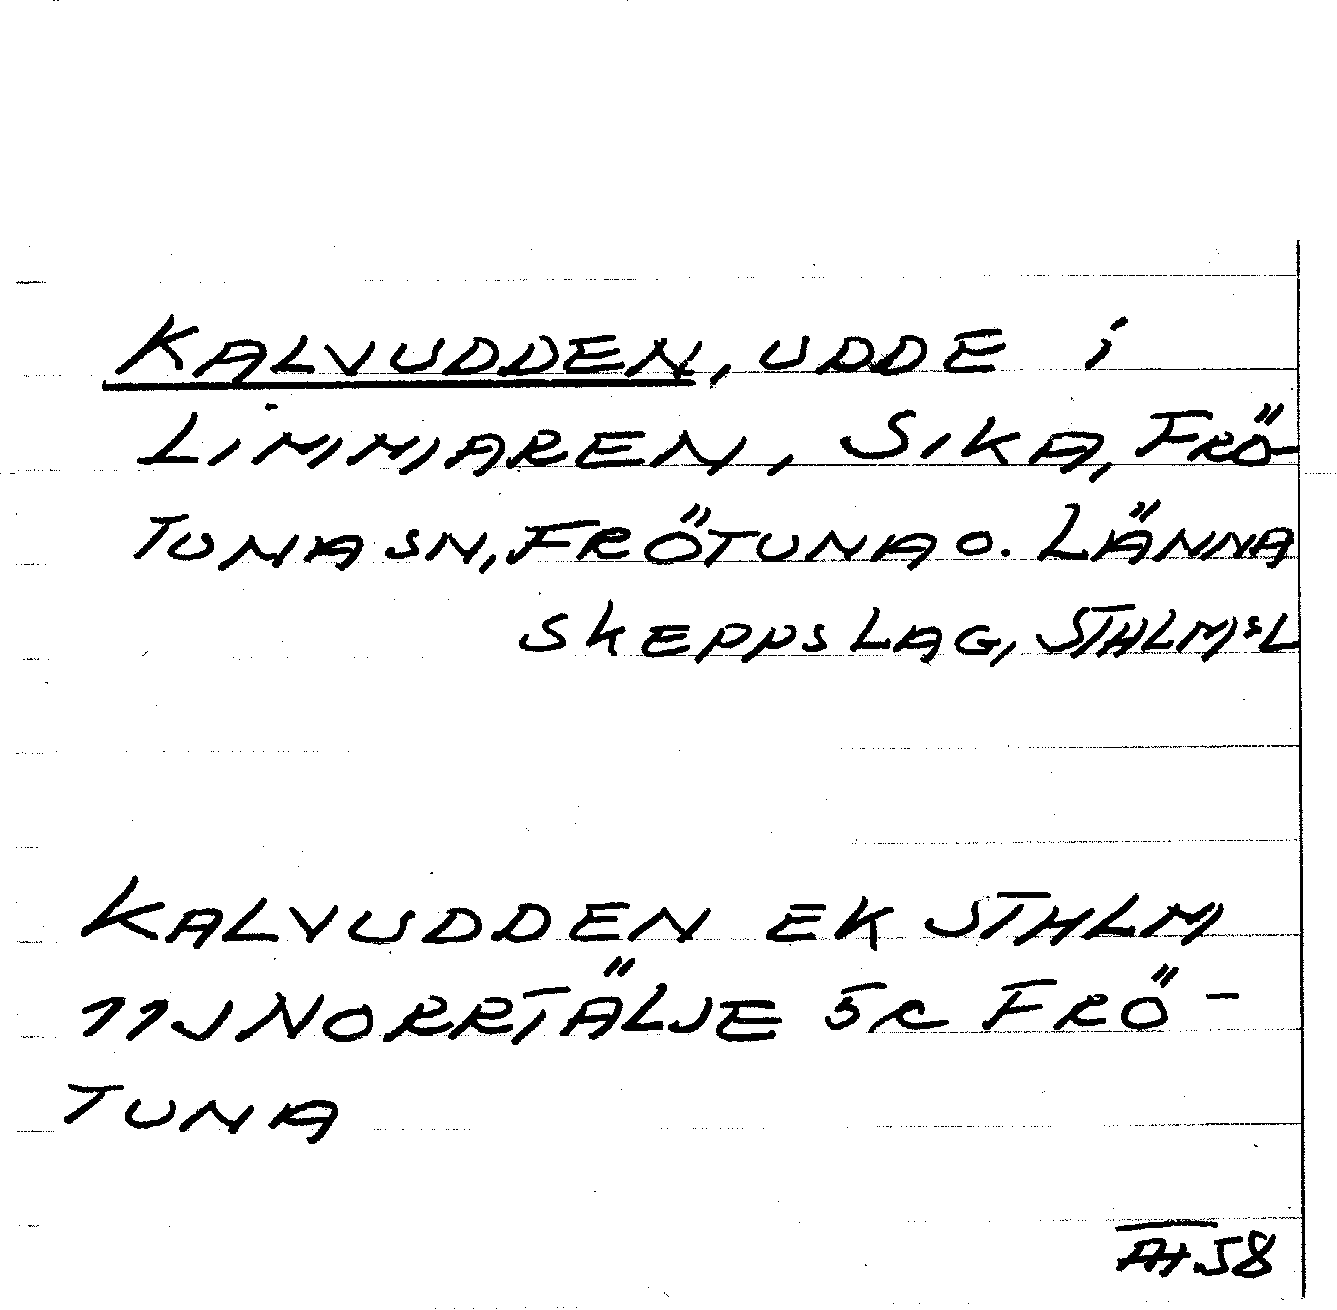 KALVUDDEN, UDDE i
LIMMAREN, SIKA, FRÖ-
TUNA SN, FRÖTUNA O. LÄNNA
SKEPPSLAG, STHLM:S L
KALVUDDEN EK STHLM
11J NORRTÄLJE 5c FRÖ-
TUNA
AH.58